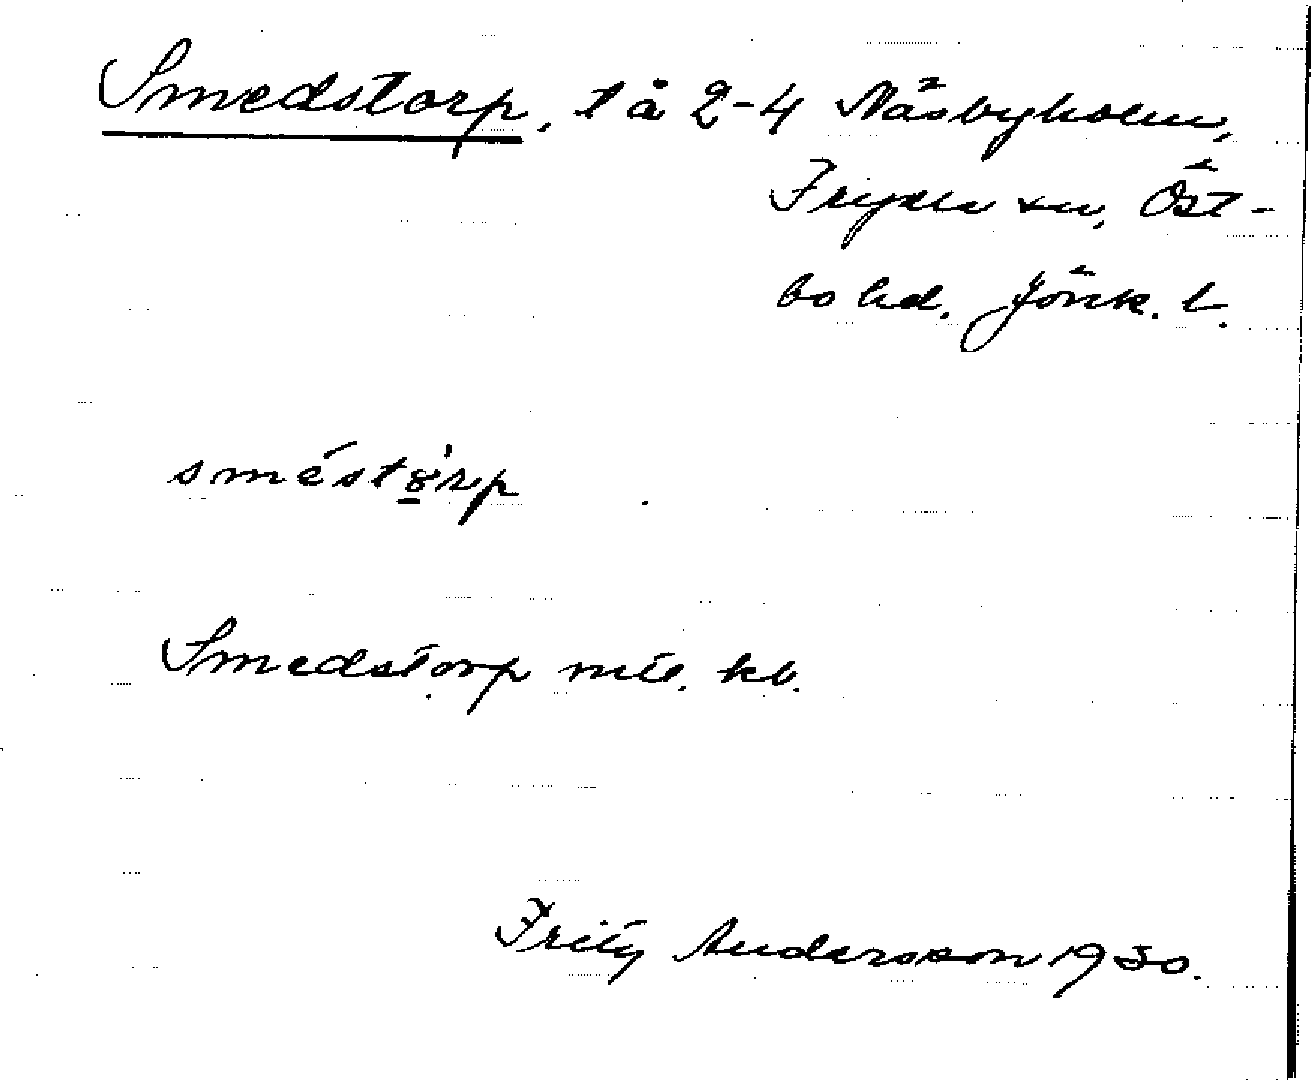 Smedstorp, t å 2-4 Näsbyholm,
Fryele sn, Öst-
bo hd. Jönk. l.
sméstòrp
Smedstorp mtl. kb.
Fritz Andersson 1930.